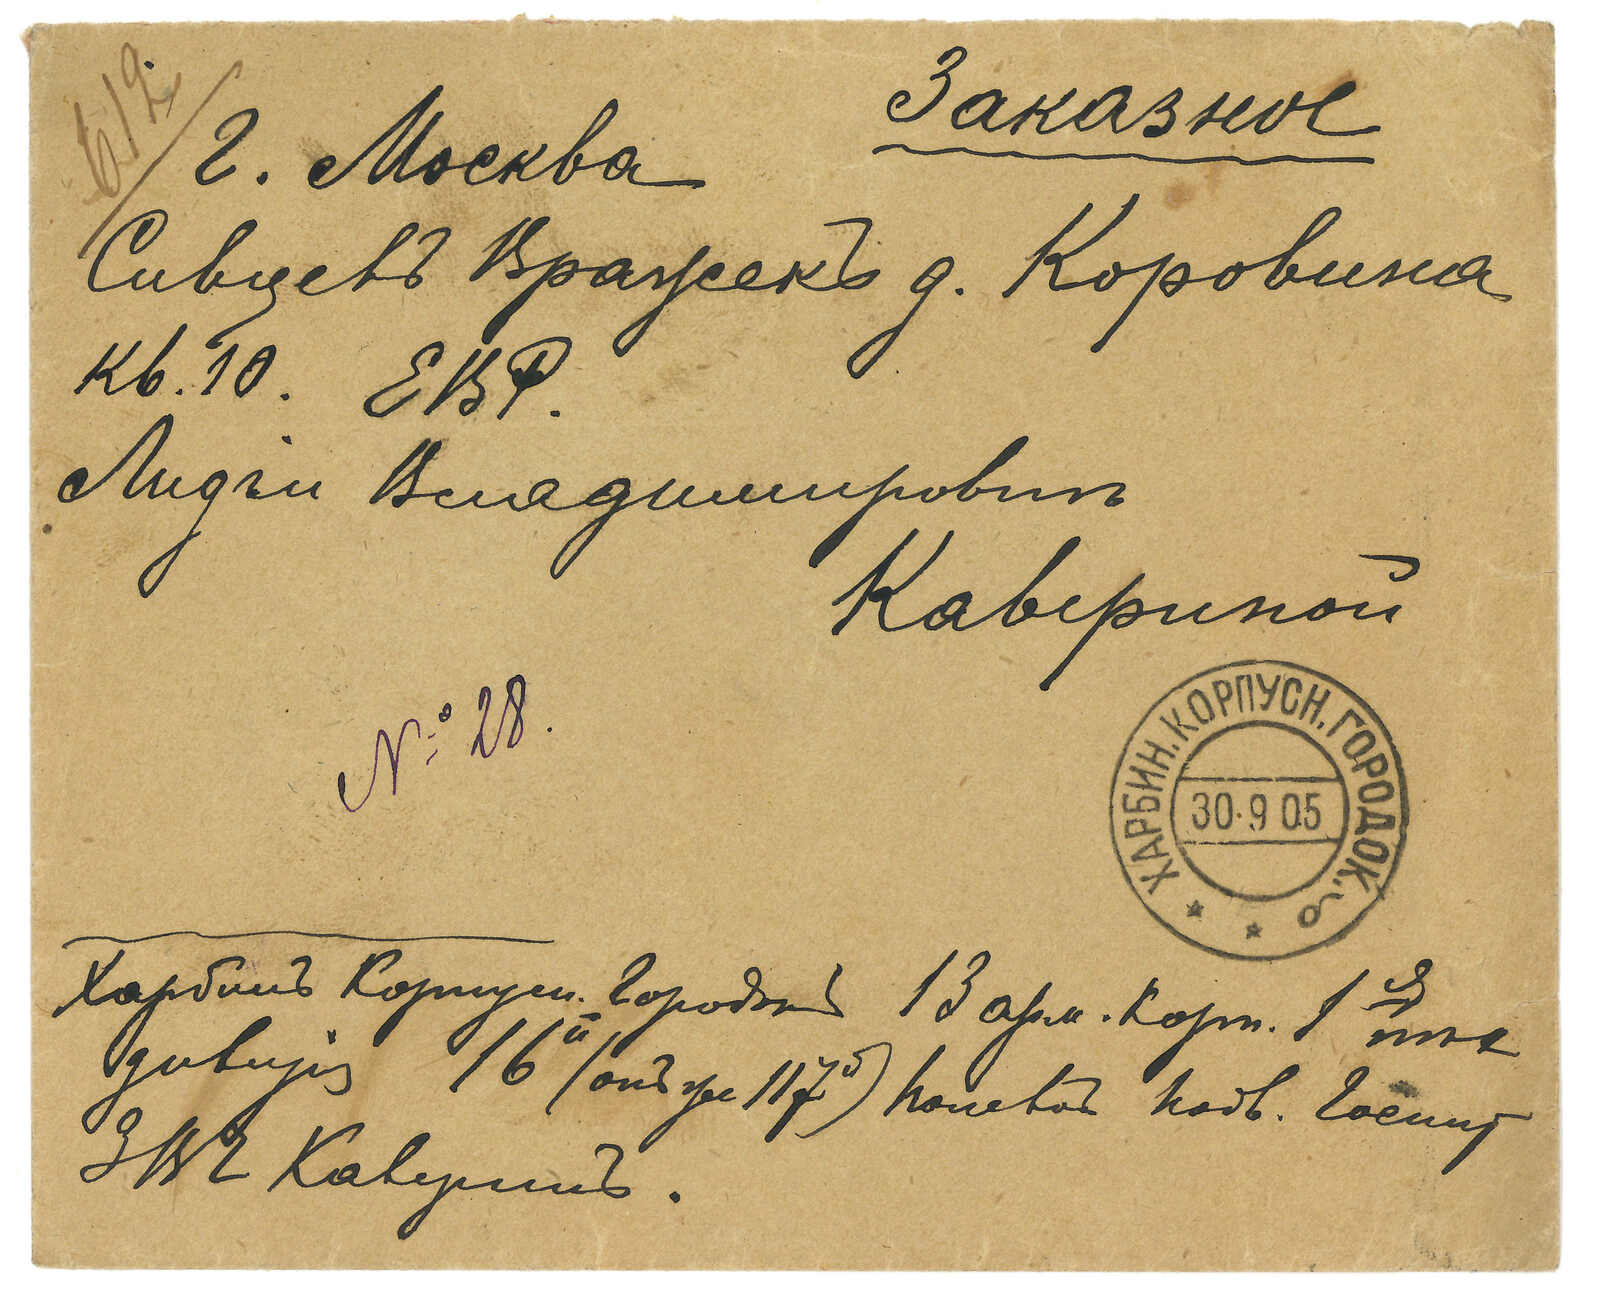 612
Заказное
г. Москва
Сивцевъ Вражекъ д. Коровина
кв. 10. ЕВР.
Лидіи Владимировнѣ
Кавериной
№ 28.
ХАРБИН. КОРПУСН. ГОРОДОК.
30·9 05
Харбинъ Корпусн. Городокъ 13 арм. Корп. 1ой
дивизіи 16й 117й) полевой подв. Госпит
ЗВЧ Каверинъ.